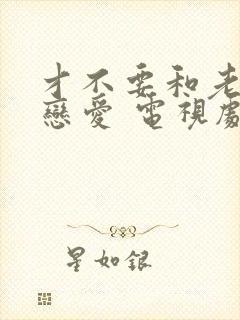 才不要和老
戀愛 電視劇
星如銀